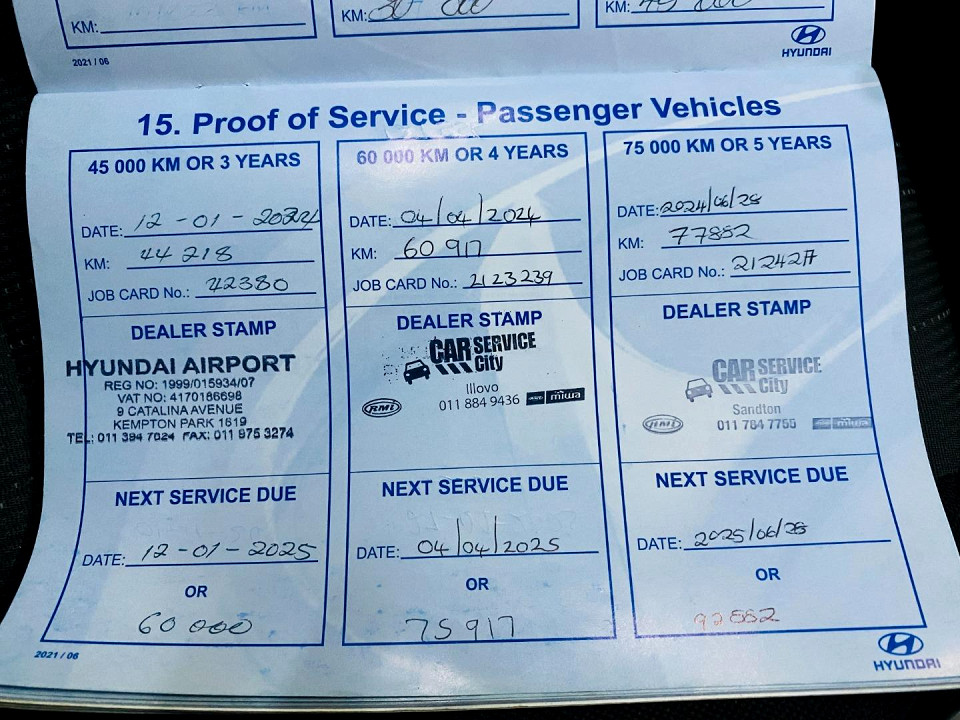 KM:
KM: 30 000
KM: 45 000
2021 / 06
HYUNDAI
15. Proof of Service - Passenger Vehicles
45 000 KM OR 3 YEARS
DATE: 12 - 01 - 2024
KM: 44 218
JOB CARD No.: 42380
DEALER STAMP
HYUNDAI AIRPORT
REG NO: 1999/015934/07
VAT NO: 4170186698
9 CATALINA AVENUE
KEMPTON PARK 1619
TEL: 011 394 7024 FAX: 011 975 3274
NEXT SERVICE DUE
DATE: 12 - 01 - 2025
OR
60 000
60 000 KM OR 4 YEARS
DATE: 04/04/2024
KM: 60 917
JOB CARD No.: 2123239
DEALER STAMP
CAR SERVICE
City
Illovo
011 884 9436
RMI
miwa
NEXT SERVICE DUE
DATE: 04/04/2025
OR
75 917
75 000 KM OR 5 YEARS
DATE: 2024/06/28
KM: 77882
JOB CARD No.:
DEALER STAMP
CAR SERVICE
City
Sandton
RMI
011 784 7755
miwa
NEXT SERVICE DUE
DATE: 2025/06/28
OR
92882
2021 / 06
HYUNDAI